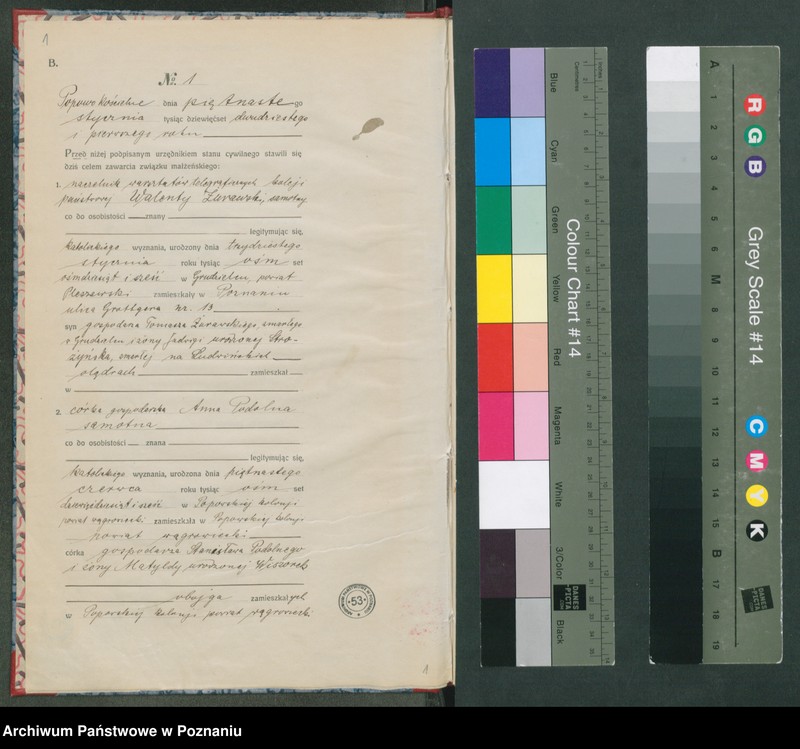 1
B.
№ 1
Popowo Kościelne dnia piętnastego
stycznia tysiąc dziewięćset dwudziestego
i pierwszego roku
Przed niżej podpisanym urzędnikiem stanu cywilnego stawili się
dziś celem zawarcia związku małżeńskiego:
1. naczelnik warsztatów telegraficznych kolei
państwowej Walenty Żurawski, samotny
co do osobistości znany
legitymując się,
katolickiego wyznania, urodzony dnia trzydziestego
stycznia roku tysiąc ośm set
ośmdziesiąt i sześć w Grudzielcu, powiat
Pleszewski zamieszkały w Poznaniu
ulica Grottgera nr. 13
syn gospodarza Tomasza Żurawskiego, zmarłego
w Grudzielcu i żony Jadwigi urodzonej
zmarłej na
olędrach zamieszkał
w
2. córka gospodarska Anna Podolna
samotna
co do osobistości znana
legitymując się,
katolickiego wyznania, urodzona dnia piętnastego
czerwca roku tysiąc ośm set
dziewięćdziesiąt i sześć w Popowskiej kolonji
powiat wągrowiecki zamieszkała w Popowskiej kolonji
powiat wągrowiecki
córka gospodarza Stanisława Podolnego
i żony Matyldy urodzonej
obojga zamieszkałych
w Popowskiej kolonji powiat wągrowiecki
53
1
Blue
Cyan
Green
Yellow
Red
Magenta
White
3/Color
Black
Centimetres
Inches
Colour Chart #14
DANES
PICTA
.COM
A
1
2
3
4
5
6
M
8
9
10
11
12
13
14
15
B
17
18
19
R
G
B
Grey Scale #14
C
M
Y
K
DANES
PICTA
.COM
Archiwum Państwowe w Poznaniu